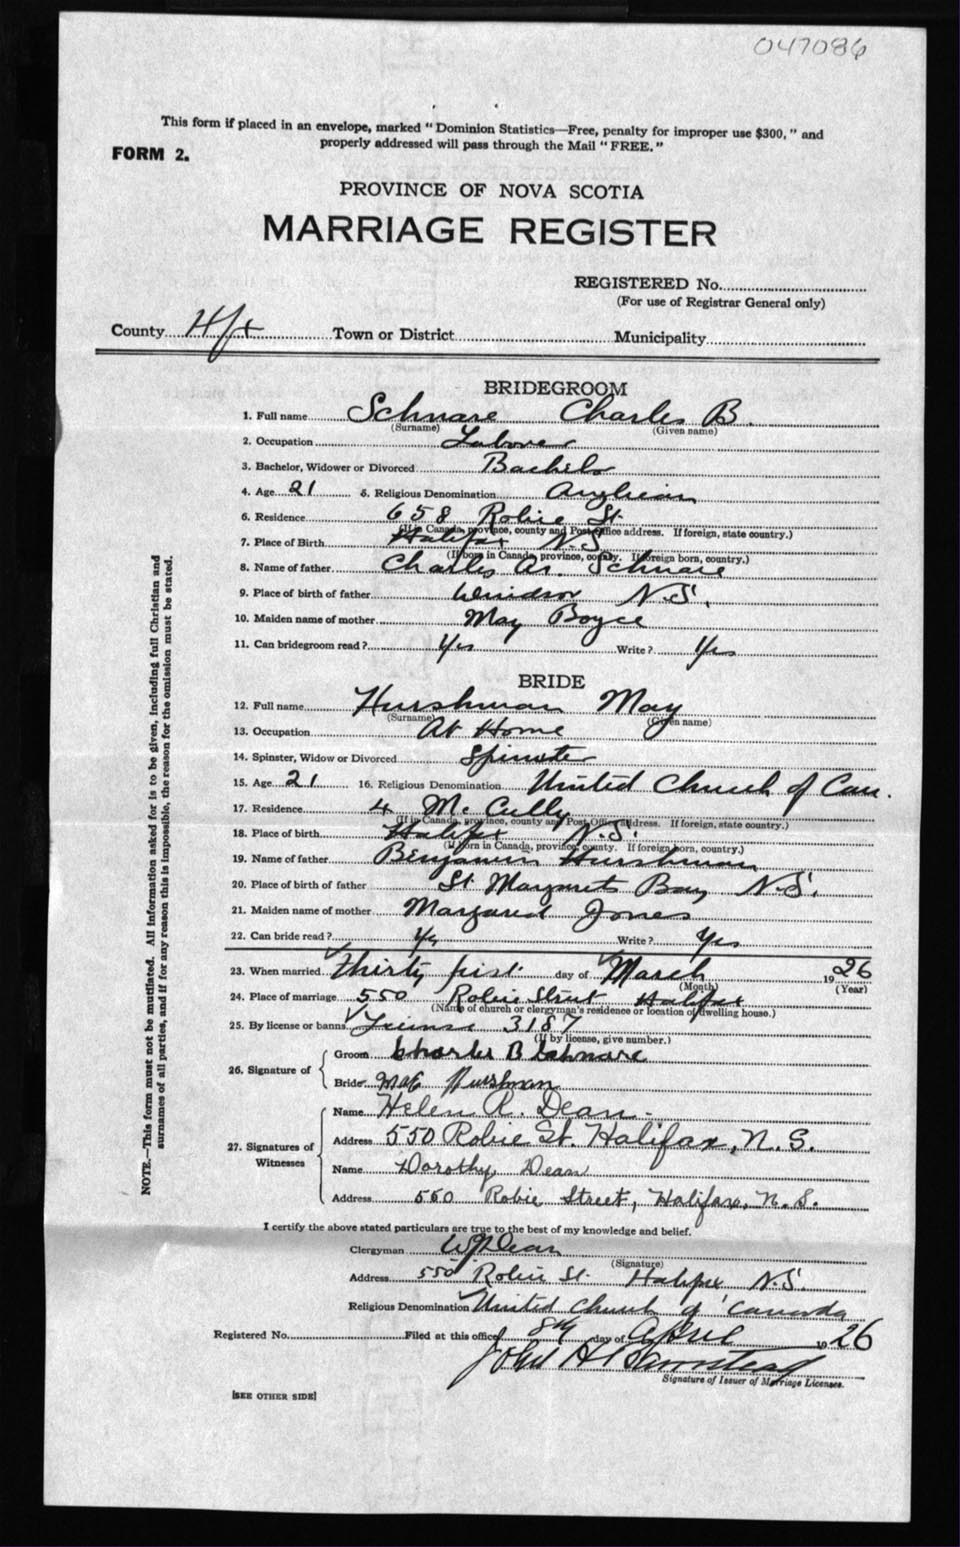 047086
This form if placed in an envelope, marked "Dominion Statistics—Free, penalty for improper use $300," and
properly addressed will pass through the Mail "FREE."
FORM 2.
PROVINCE OF NOVA SCOTIA
MARRIAGE REGISTER
REGISTERED No.
(For use of Registrar General only)
County Hfx Town or District Municipality
BRIDEGROOM
1. Full name Schnare Charles B.
(Surname) (Given name)
2. Occupation Laborer
3. Bachelor, Widower or Divorced Bachelor
4. Age 21 5. Religious Denomination Anglican
6. Residence 658 Robie St.
(If in Canada, province, county and Post Office address. If foreign, state country.)
7. Place of Birth Halifax N.S.
(If born in Canada, province, county. If foreign born, country.)
8. Name of father Charles Schnare
9. Place of birth of father Windsor N.S.
10. Maiden name of mother May Boyce
11. Can bridegroom read? Yes Write? Yes
BRIDE
12. Full name Hurshman May
(Surname) (Given name)
13. Occupation At Home
14. Spinster, Widow or Divorced Spinster
15. Age 21 16. Religious Denomination United Church of Can.
17. Residence 4 McCully
(If in Canada, province, county and Post Office address. If foreign, state country.)
18. Place of birth Halifax N.S.
(If born in Canada, province, county. If foreign born, country.)
19. Name of father Benjamin Hurshman
20. Place of birth of father St. Margarets Bay N.S.
21. Maiden name of mother Margaret Jones
22. Can bride read? Yes Write? Yes
23. When married thirty first day of March 1926
(Month) (Year)
24. Place of marriage 550 Robie Street Halifax
(Name of church or clergyman's residence or location of dwelling house.)
25. By license or banns License 3187
(If by license, give number.)
26. Signature of
Groom Charles B Schnare
Bride Mae Hurshman
27. Signatures of Witnesses
Name Helen R. Dean.
Address 550 Robie St. Halifax, N.S.
Name Dorothy Dean
Address 550 Robie Street, Halifax, N.S.
I certify the above stated particulars are true to the best of my knowledge and belief.
Clergyman Dean
(Signature)
Address 550 Robie St. Halifax N.S.
Religious Denomination United Church of Canada
Registered No. Filed at this office 8th day of April 1926
John H Barnstead
Signature of Issuer of Marriage Licenses.
[SEE OTHER SIDE]
NOTE.—This form must not be mutilated. All information asked for is to be given, including full Christian and
surnames of all parties, and if for any reason this is impossible, the reason for the omission must be stated.